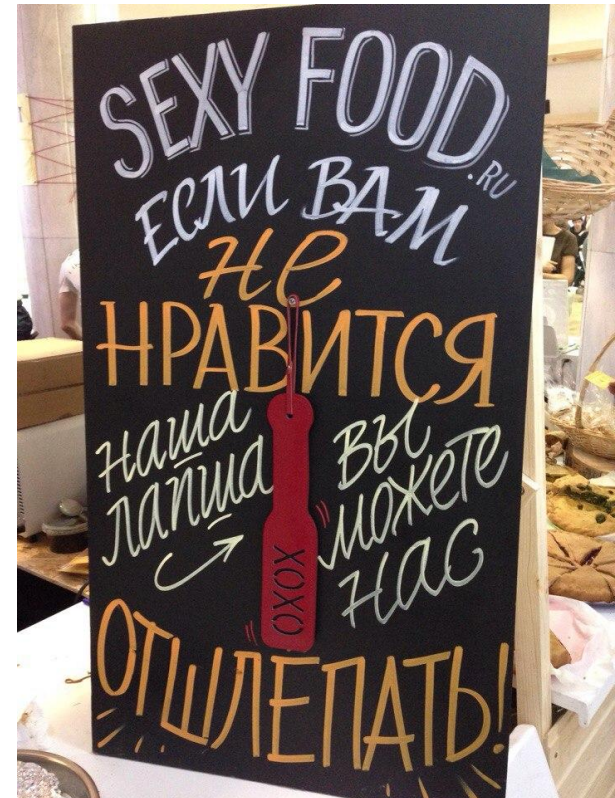 SEXY FOOD.RU
ЕСЛИ ВАМ
не
НРАВИТСЯ
наша
лапша
вы
можете
нас
XOXO
ОТШЛЕПАТЬ!